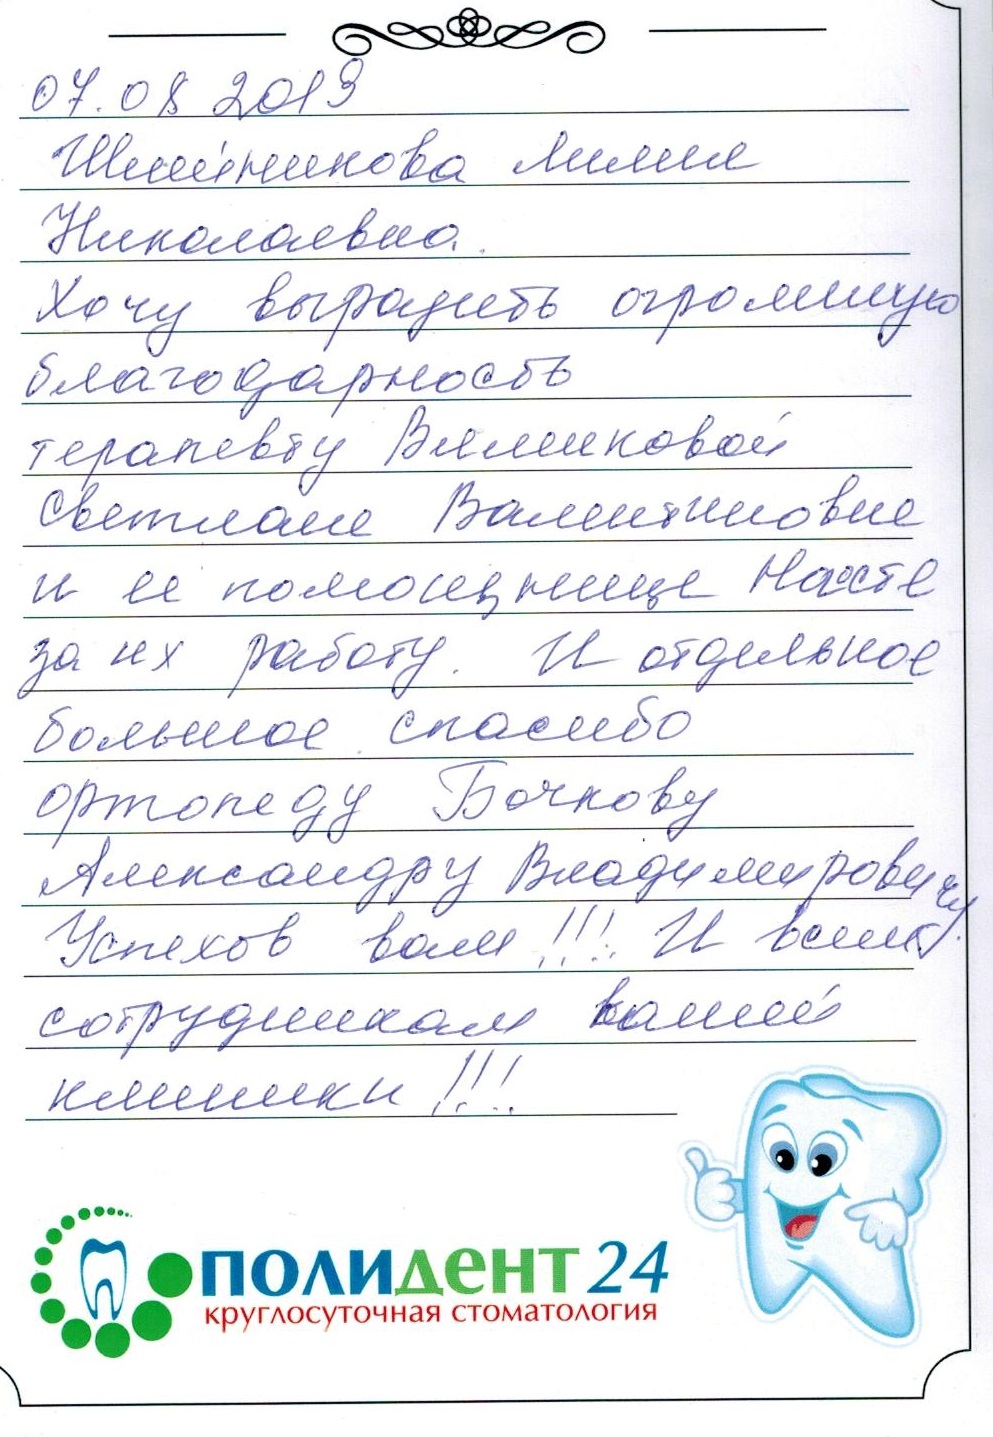 07.08 2019
Лилия
Николаевна.
Хочу выразить огромную
благодарность
терапевту
Светлане Валентиновне
и ее помощнице Насте
за их работу. И отдельное
большое спасибо
ортопеду Бочкову
Александру Владимировичу.
Успехов вам!!! И всем
сотрудникам вашей
клиники!!!
ПОЛИДЕНТ 24
круглосуточная стоматология